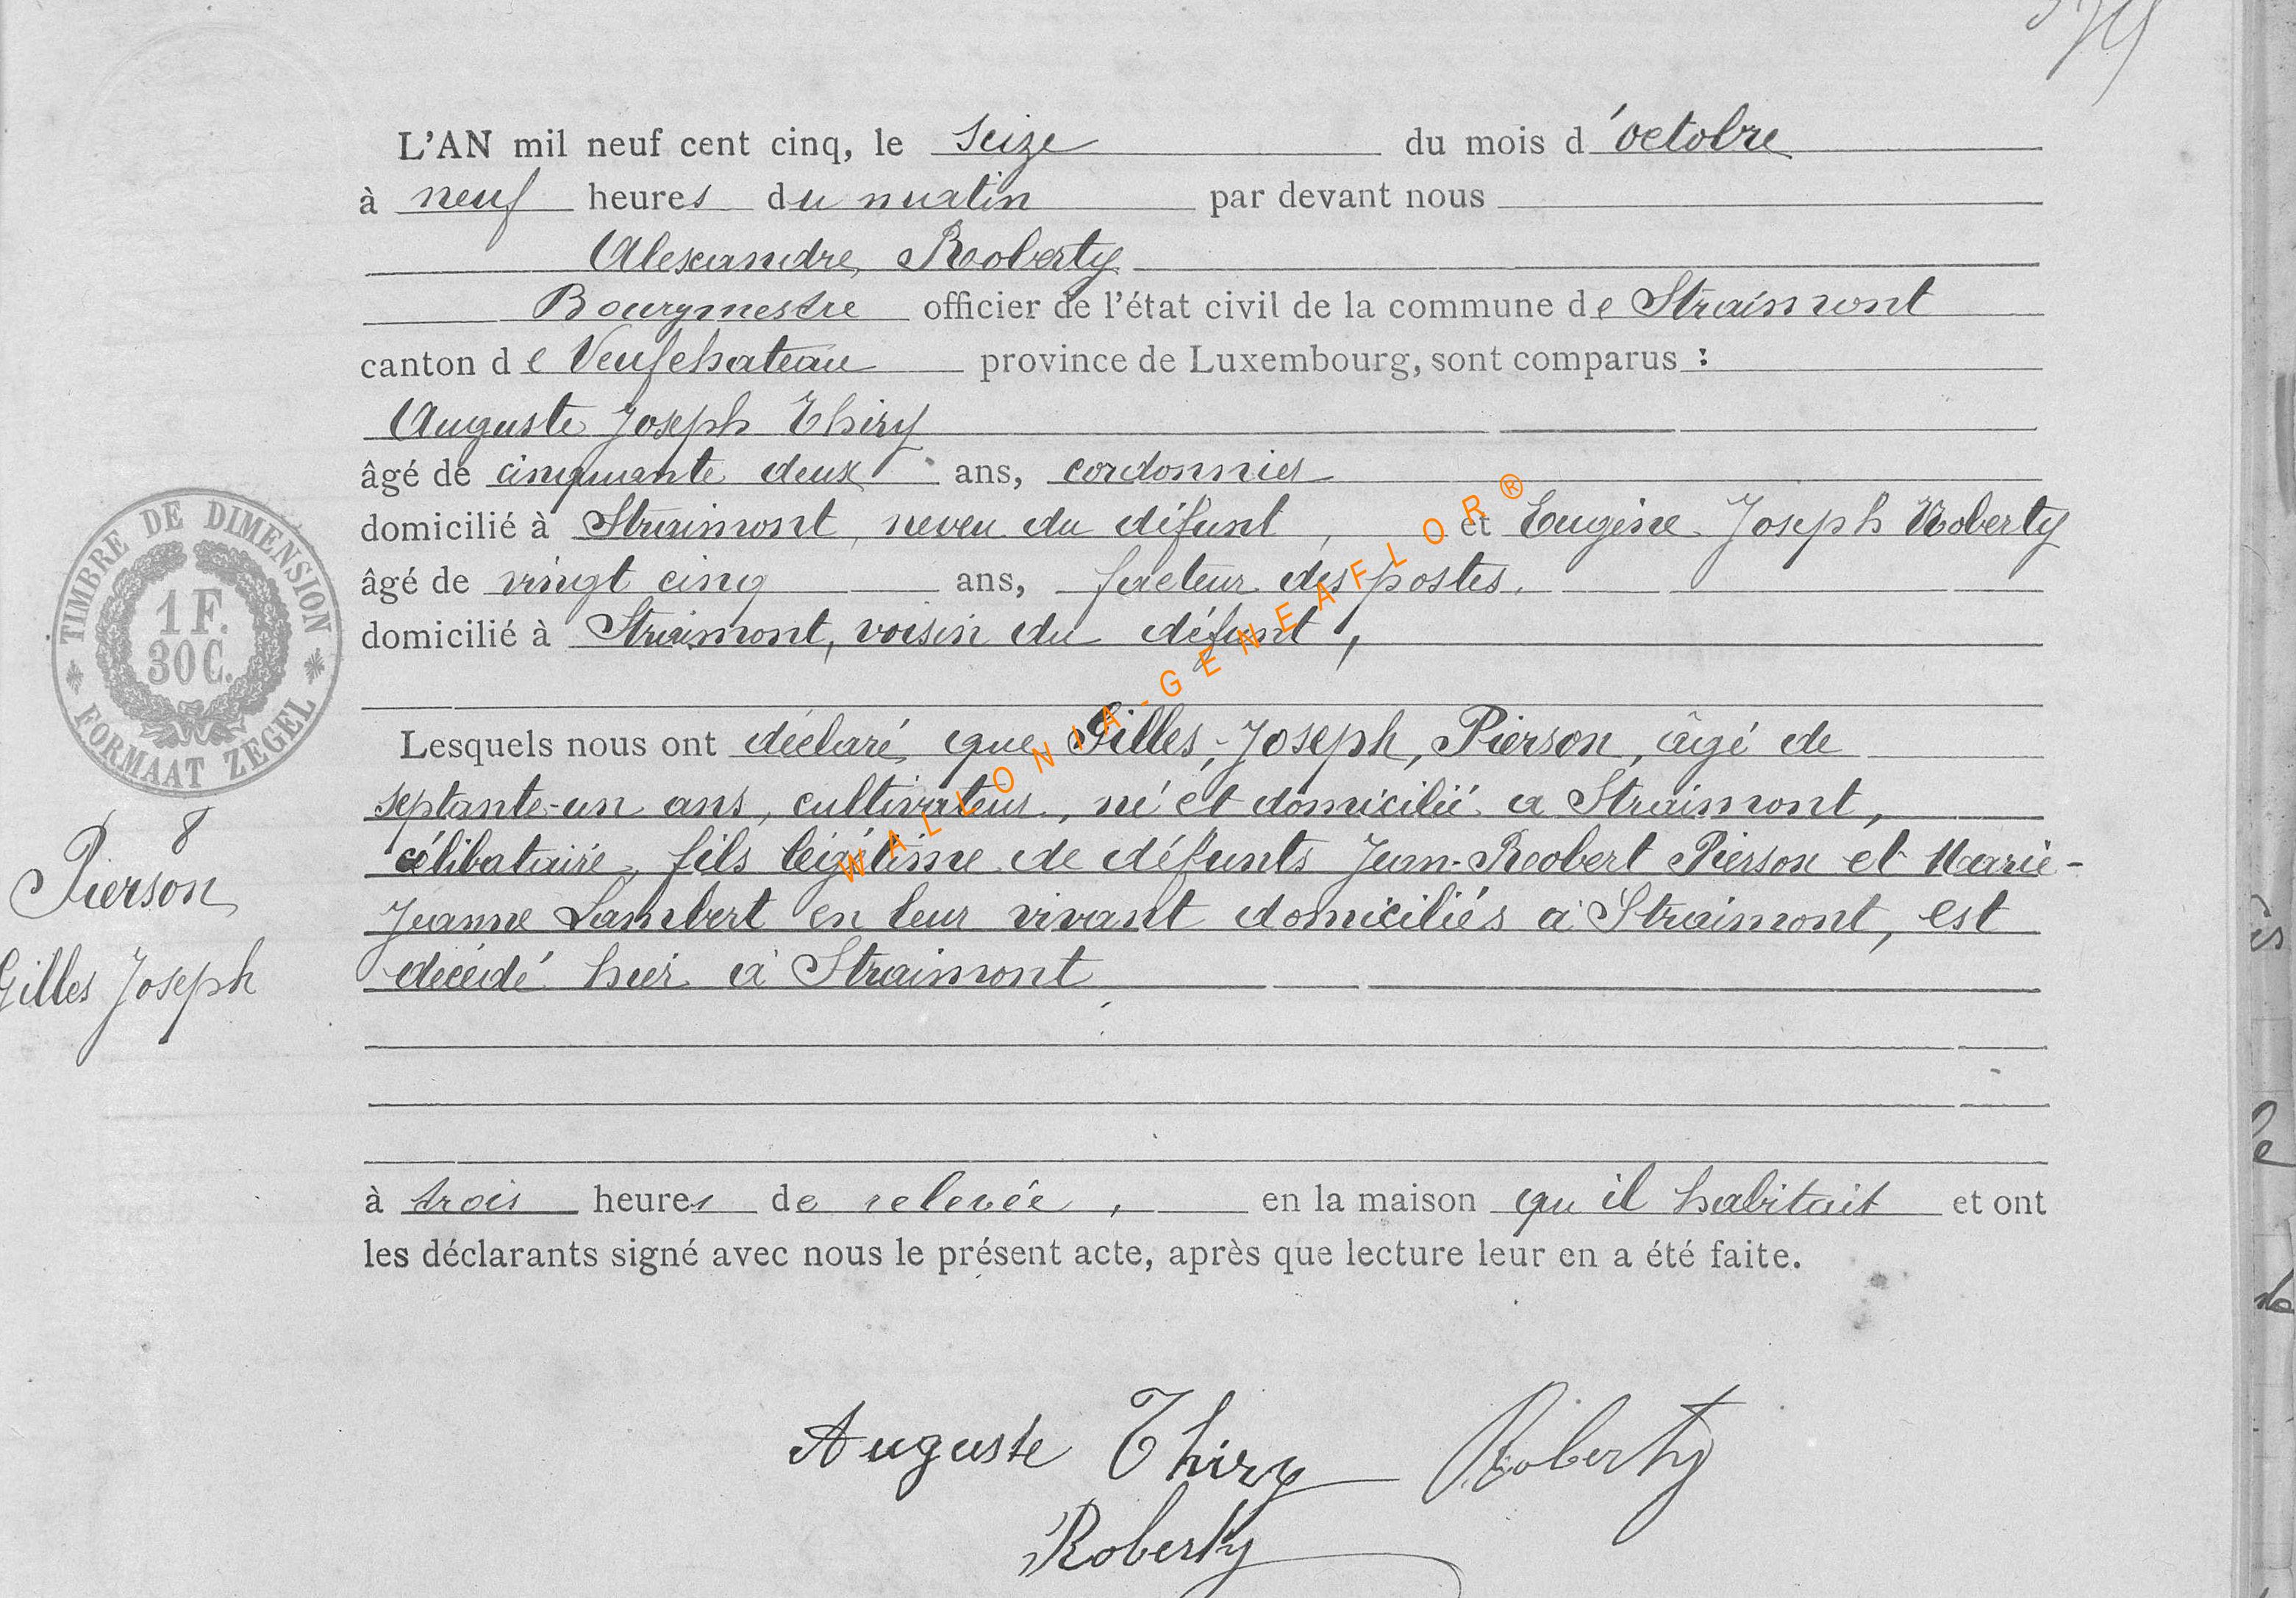 L'AN mil neuf cent cinq, le seize du mois d'octobre
à neuf heures du matin par devant nous
Alexandre Roberty
Bourgmestre officier de l'état civil de la commune de Straimont
canton de Neufchateau province de Luxembourg, sont comparus :
Auguste Joseph Thiry
âgé de cinquante deux ans, cordonnier
domicilié à Straimont, neveu du défunt, et Eugène Joseph Roberty
âgé de vingt cinq ans, facteur des postes.
domicilié à Straimont, voisin du défunt,
Lesquels nous ont déclaré que Gilles, Joseph, Pierson, âgé de
septante-un ans, cultivateur, né et domicilié à Straimont,
célibataire, fils légitime de défunts Jean-Robert Pierson et Marie-
Jeanne Lambert en leur vivant domiciliés à Straimont, est
décédé hier à Straimont
à trois heures de relevée, en la maison qu'il habitait et ont
les déclarants signé avec nous le présent acte, après que lecture leur en a été faite.
Auguste Thiry Roberty
Roberty
TIMBRE DE DIMENSION
1 F.
30 C.
FORMAAT ZEGEL
8
Pierson
Gilles Joseph
WALLONIA-GENEAFLOR®